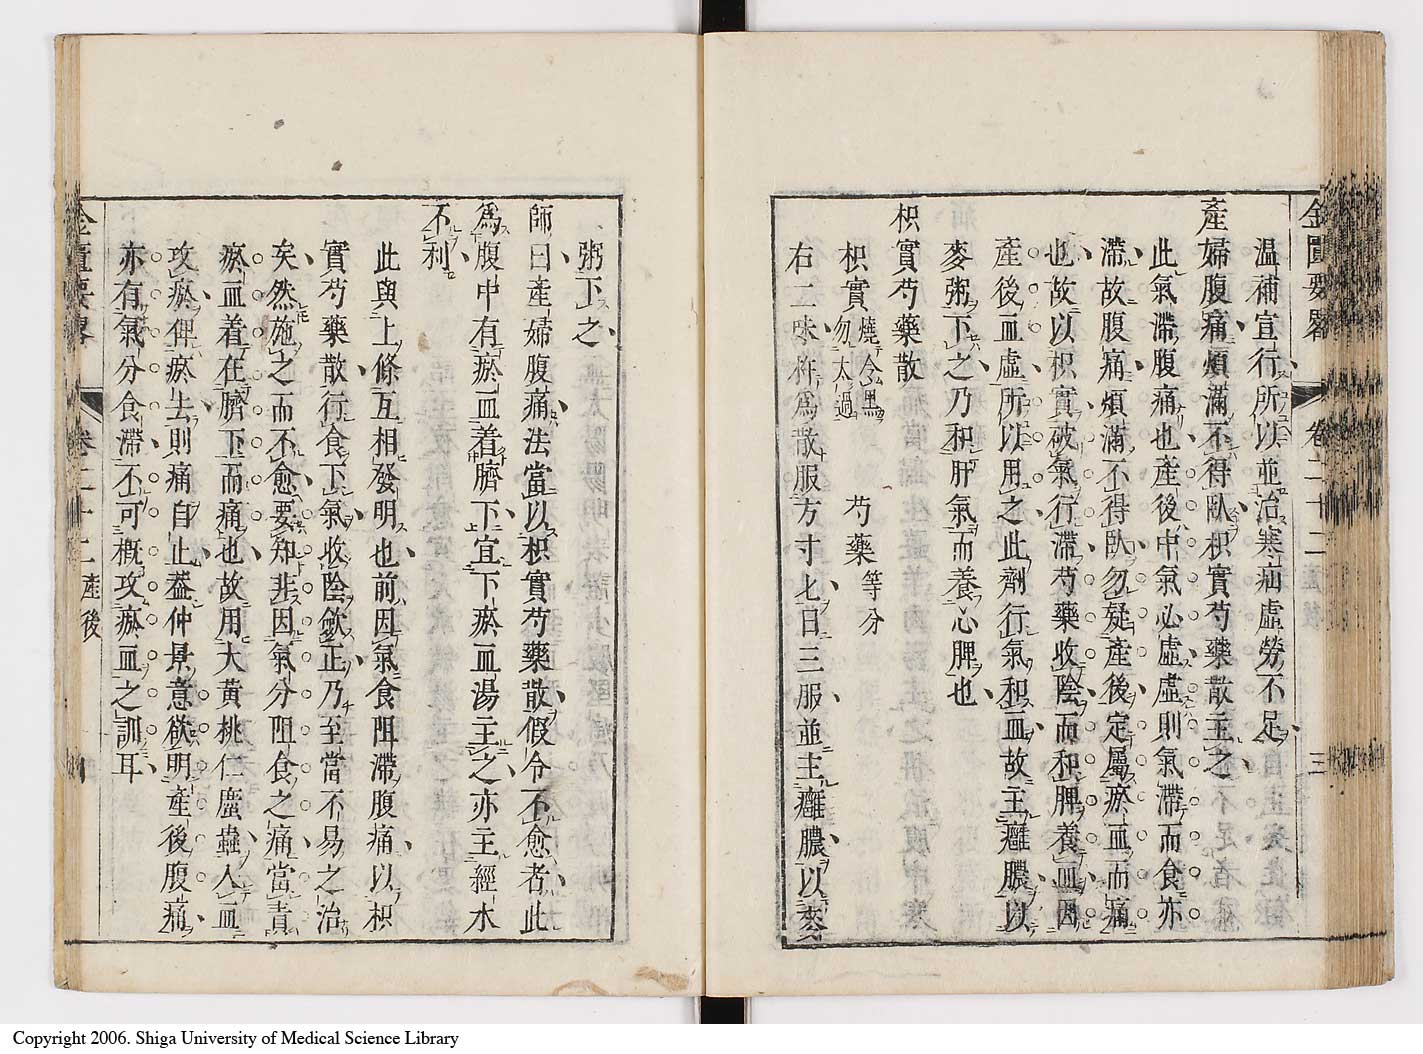 金匱要畧 卷二十二 產後 三
温補宣行所以並治寒疝虛勞不足
產婦腹痛煩滿不得臥枳實芍藥散主之
此氣滯腹痛也產後中氣必虛虛則氣滯而食亦
滯故腹痛煩滿不得臥勿疑產後定屬瘀血而痛
也故以枳實破氣行滯芍藥收陰而和脾養血因
產後血虛所以用之此劑行氣和血故主癰膿以
麥粥下之乃和肝氣而養心脾也
枳實芍藥散
枳實燒令黑勿太過 芍藥等分
右二味杵為散服方寸匕日三服並主癰膿以麥
粥下之
師曰產婦腹痛法當以枳實芍藥散假令不愈者此
為腹中有瘀血着臍下宜下瘀血湯主之亦主經水
不利
此與上條互相發明也前因氣食阻滯腹痛以枳
實芍藥散行食下氣收陰斂正乃至當不易之治
矣然施之而不愈要知非因氣分阻食之痛當責
瘀血着在臍下而痛也故用大黃桃仁䗪蟲入血
攻瘀俾瘀去則痛自止葢仲景意欲明產後腹痛
亦有氣分食滯不可概攻瘀血之訓耳
金匱要畧 卷二十二 產後
Copyright 2006. Shiga University of Medical Science Library